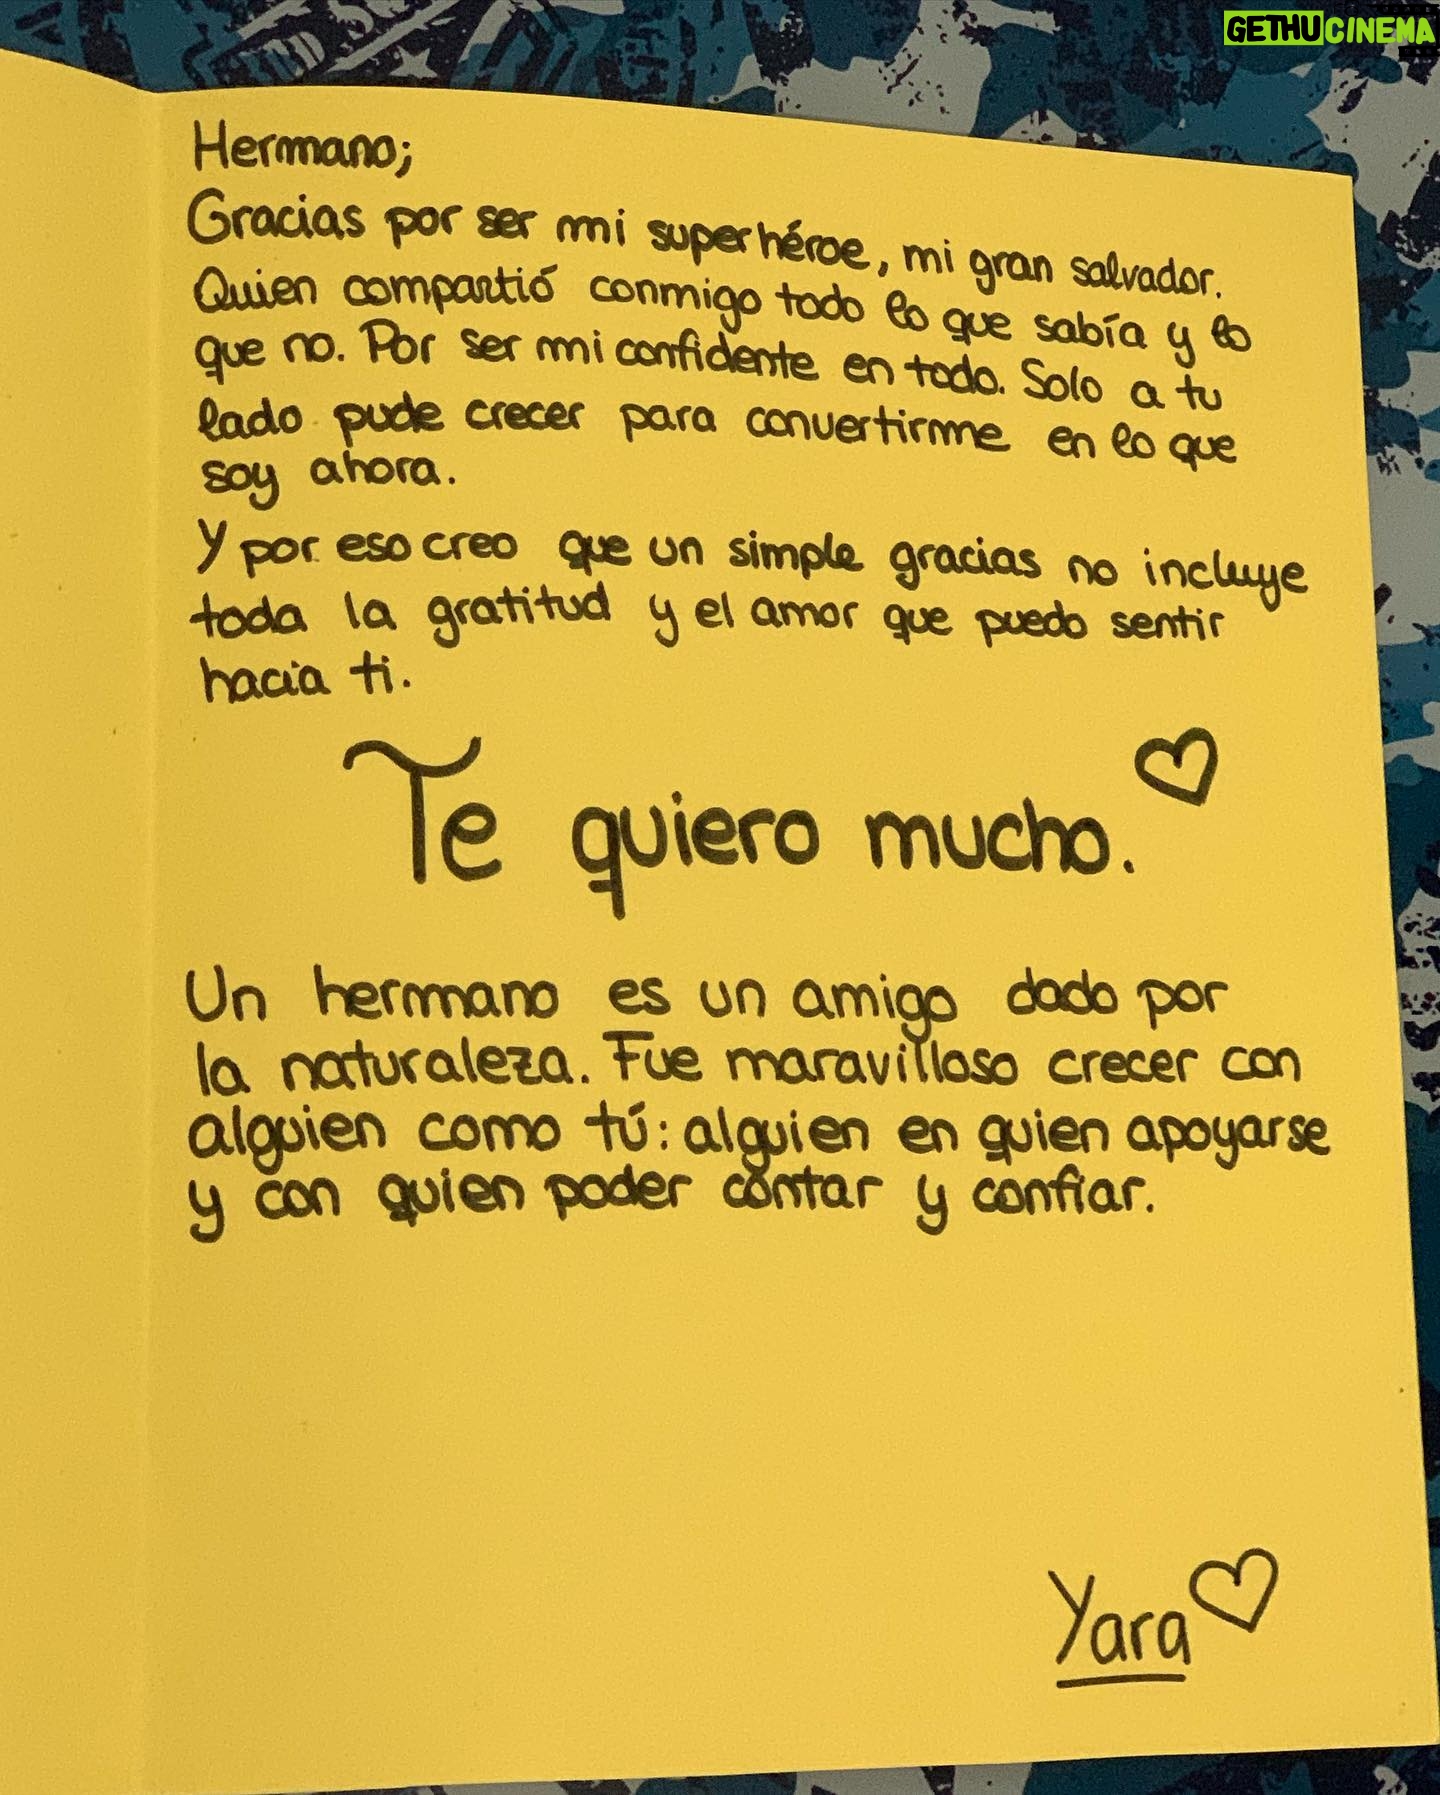 GETHUCINEMA
Hermano;
Gracias por ser mi superhéroe, mi gran salvador.
Quien compartió conmigo todo lo que sabía y lo
que no. Por ser mi confidente en todo. Solo a tu
lado pude crecer para convertirme en lo que
soy ahora.
Y por eso creo que un simple gracias no incluye
toda la gratitud y el amor que puedo sentir
hacia ti.
Te quiero mucho.
Un hermano es un amigo dado por
la naturaleza. Fue maravilloso crecer con
alguien como tú: alguien en quien apoyarse
y con quien poder contar y confiar.
Yara